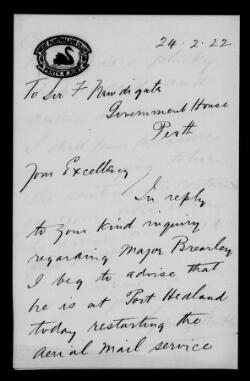 WEST AUSTRALIAN CLUB
PERTH, W.A.
24-2-22
To Sir F Newdigate
Government House
Perth
Your Excellency
In reply
to your kind inquiry
regarding Major Brearley
I beg to advise that
he is at Port Hedland
today restarting the
aerial mail service